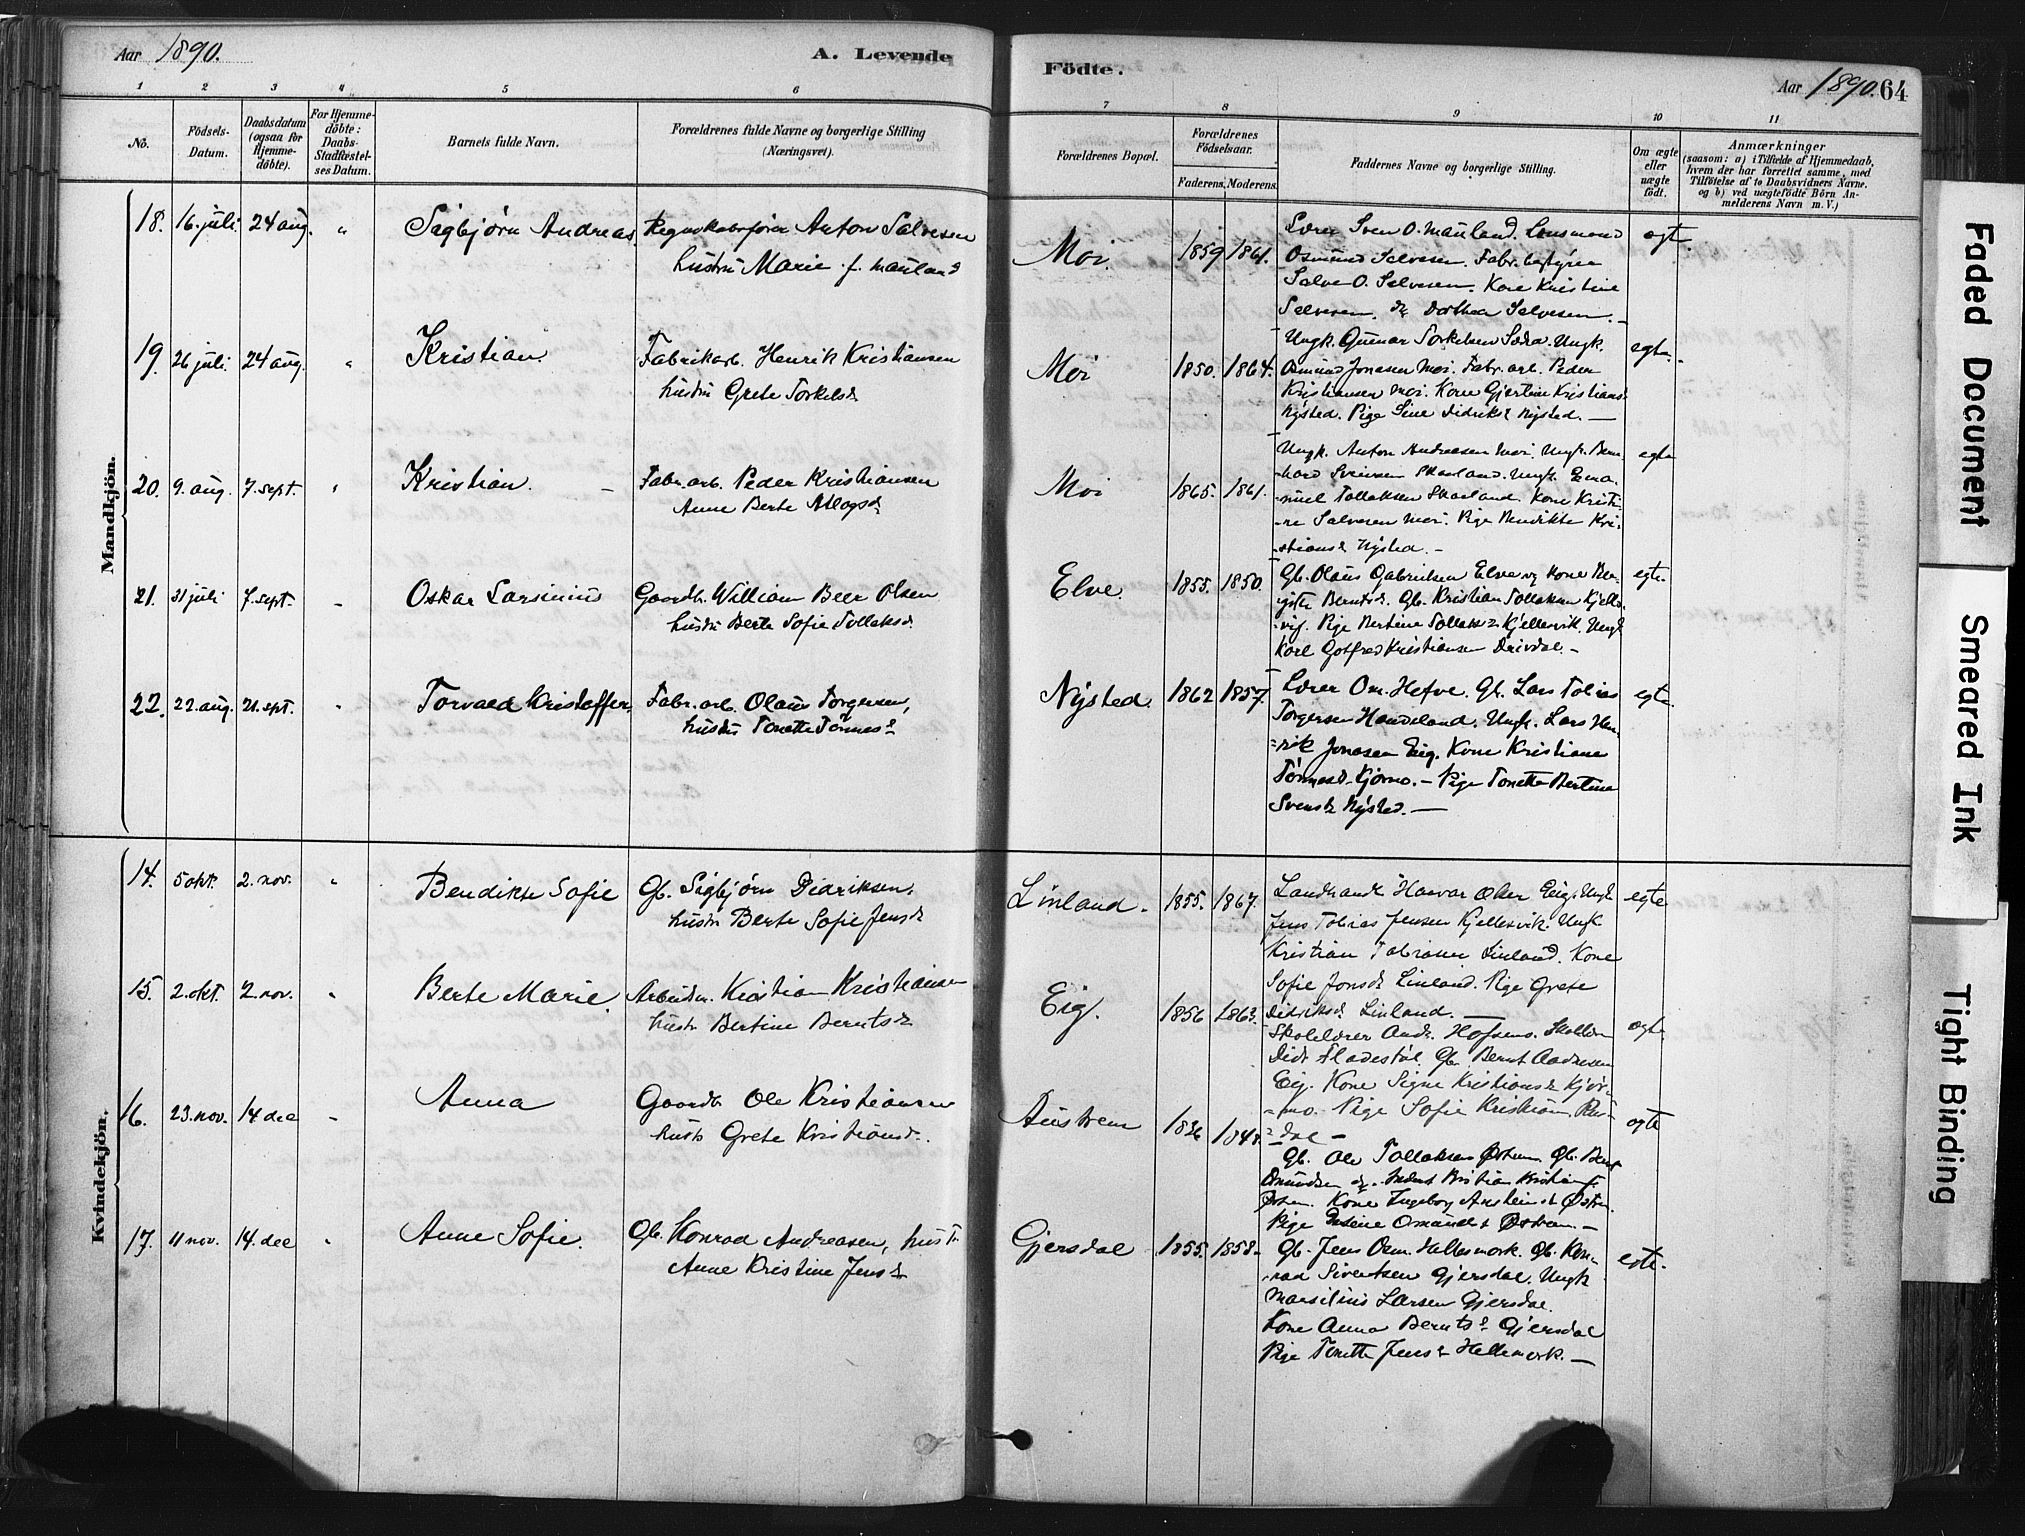 Aar 1890.
A. Levende
Födte.
Aar 1890. 64
1 2 3 4 5 6
7 8 9 10 11
No.
Födsels-
Datum.
Daabsdatum
(ogsaa for
Hjemme-
döbte).
For Hjemme-
döbte:
Daabs-
Stadfæstel-
ses Datum.
Barnets fulde Navn.
Forældrenes fulde Navne og borgerlige Stilling
(Næringsvei).
Forældrenes Bopæl.
Forældrenes
Födselsaar.
Faderens. Moderens.
Faddernes Navne og borgerlige Stilling.
Om ægte
eller
uægte
födt.
Anmærkninger
(saasom: a) i Tilfælde af Hjemmedaab,
hvem der har forrettet samme, med
Tilföielse af to Daabsvidners Navne.
og b) ved uægtefödte Börn An-
melderens Navn m. V.)
Mandkjön.
18. 16. juli 24 aug. " Sigbjørn Andreas. Regnskabsfører Anton Salvesen
hustru Marie f. Mauland
Moi. 1859 1861.
Lærer Sven O. Mauland. Lensmand
Osmund Salvesen. Fabr.bestyrer
Salve O. Salvesen. Kone Kristine
Salvesen. Dorthea Salvesen.
egt
19. 26 juli 24 aug. " Kristian. Fabrikarb. Henrik Kristiansen
hustru Grete Torkelsd
Moi 1850. 1864.
Ungk. Gunnar Torkelsen Ungk.
Osmund Jonasen Moi. Fabr. arb. Peder
Kristiansen Moi. Kone Gjertine Kristians
Nysted. Pige Sine Didriksd Nysted. —
egte.
20. 9. aug. 7. sept. " Kristian. — Fabr. arb. Peder Kristiansen
Anne Berte
Moi 1865. 1861.
Ungk. Anton Andreasen Moi. Ungk. Bern-
hard Svensen Skarland. Ungk. Ema-
nuel Tollaksen Skarland. Kone Kristi-
ne Salvesen Moi. Pige Bendikte Kri-
stiansd Nysted. —
egte
21. 31 juli 7. sept. " Oskar Larsinius Gaardb. William Beer Olsen
hustru Berte Sofie Tollaksd.
Elve. 1855. 1850.
Gb. Olaus Gabrielsen Elve og Kone Ber-
gitte Berntsd. Gb. Kristian Tollaksen Kjelles-
vig. Pige Bertine Tollaksd Kjellesvik. Ungk
Karl Gotfred Kristiansen Drivdal. —
egte.
22. 22. aug. 21. sept. " Torvald Kristoffer. Fabr. arb. Olaus Torgersen,
hustru Tonette Tönnesd
Nysted. 1862 1857.
Lærer Om. Hefve. Gb. Lars Tobias
Torgersen Haudeland. Ungk. Lars Hen-
rik Jonasen Eig. Kone Kristiane
Tönnesd. Kjørmo. — Pige Tonette Bertine
Svensd Nysted. —
egte.
Kvindekjön.
14. 5 okt. 2. nov. " Bendikte Sofie Gb. Sigbjørn Didriksen.
hustru Berte Sofie Jensd
Linland. 1855. 1867.
Landhandl. Havar Olsen Eeig. Ungk
Jens Tobias Jensen Kjellesvik. Ungk
Kristian Tobiasen Linland. Kone
Sofie Jonsd Linland. Pige Grete
Didriksd Linland. —
egte
15. 2. okt. 2. nov. " Berte Marie. Arbeider. Kristian Kristiansen
hustr Bertine Berntsd
Eig. 1856 1863.
Skolelærer Andr. Hofsmo.
Didr. Fladestøl. Gb. Bernt Aadnesen
Eig. Kone Signe Kristiansd Kjør-
mo. Pige Sofie Kristians
dal —
egte.
16. 23. nov. 14 dec " Anna Gaardb. Ole Kristiansen
hustr Grete Kristiansd.
Austrem 1836 184
Gb. Ole Tollaksen Østrem. Gb. Bernt
Osmundsen Kristian Kristians
Kone Ingeborg
Pige Omundsd Østrem. —
egte
17. 11 nov. 14. dec " Anne Sofie. Gb. Konrad Andreasen, hustr.
Anne Kristine Jensd
Gjersdal 1855. 1858.
Gb. Jens Osm. Hallesmork. Gb. Kon-
rad Sivertsen Gjersdal. Ungk
Marsilius Larsen Gjersdal.
Kone Anna Berntsd Gjersdal
Pige Tonette Jensd Hallesmork. —
egte.
Faded Document
Smeared Ink
Tight Binding